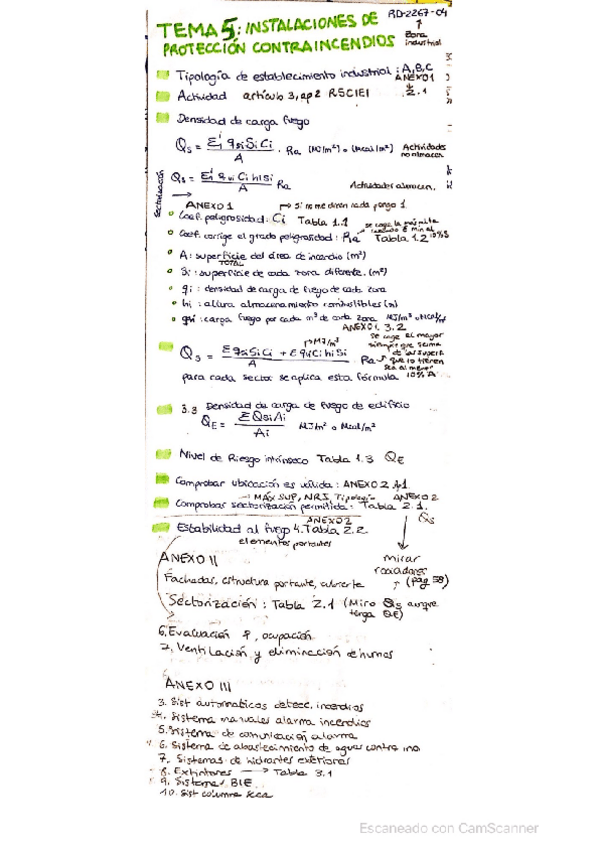 TEMA 5: INSTALACIONES DE
PROTECCIÓN CONTRAINCENDIOS
RD-2267-04
↑
Zona
industrial
Tipología de establecimiento industrial: A, B, C
ANEXO 1
Actividad artículo 3, ap 2 RSCIEI
2.1
Densidad de carga fuego
Qs = Σ qsi Si Ci / A · Ra (MJ/m²) o (Mcal/m²) Actividades no almacen.
Sectorización
Qs = Σ qvi Ci hi Si / A Ra Actividades almacen.
→ ANEXO 1 → Si no me dicen nada pongo 1
Coef. peligrosidad: Ci Tabla 1.1
Coef. corrige el grado peligrosidad: Ra Tabla 1.2
A: superficie TOTAL del área de incendio (m²)
Si: superficie de cada zona diferente. (m²)
qi: densidad de carga de fuego de cada zona
hi: altura almacenamiento combustibles (m)
qvi: carga fuego por cada m³ de cada zona MJ/m³ o Mcal/m³
ANEXO 1. 3.2
Qs = Σ qsi Si Ci + Σ qvi Ci hi Si / A Ra
se coge el mayor
siempre que
10% A
para cada sector se aplica esta fórmula
3.3 Densidad de carga de fuego de edificio
QE = Σ Qsi Ai / Ai MJ/m² o Mcal/m²
Nivel de Riesgo intrínseco Tabla 1.3 QE
Comprobar ubicación es válida: ANEXO 2 A1
→ MÁX SUP, NRI, Tipología ANEXO 2
Comprobar sectorización permitida: Tabla 2.1.
Qs
ANEXO 2
Estabilidad al fuego 4. Tabla 2.2.
elementos portantes
ANEXO II
mirar
rociadores
(pag 38)
Fachadas, estructura portante, cubierta
Sectorización: Tabla 2.1 (Miro Qs aunque
tenga QE)
6. Evacuación, ocupación
7. Ventilación y eliminación de humos
ANEXO III
3. Sist automáticos detecc. incendios
4. Sistema manuales alarma incendios
5. Sistema de comunicación alarma
6. Sistema de abastecimiento de agua contra inc
7. Sistemas de hidrantes exteriores
8. Extintores → Tabla 3.1
9. Sistemas BIE
10. Sist columna seca
Escaneado con CamScanner